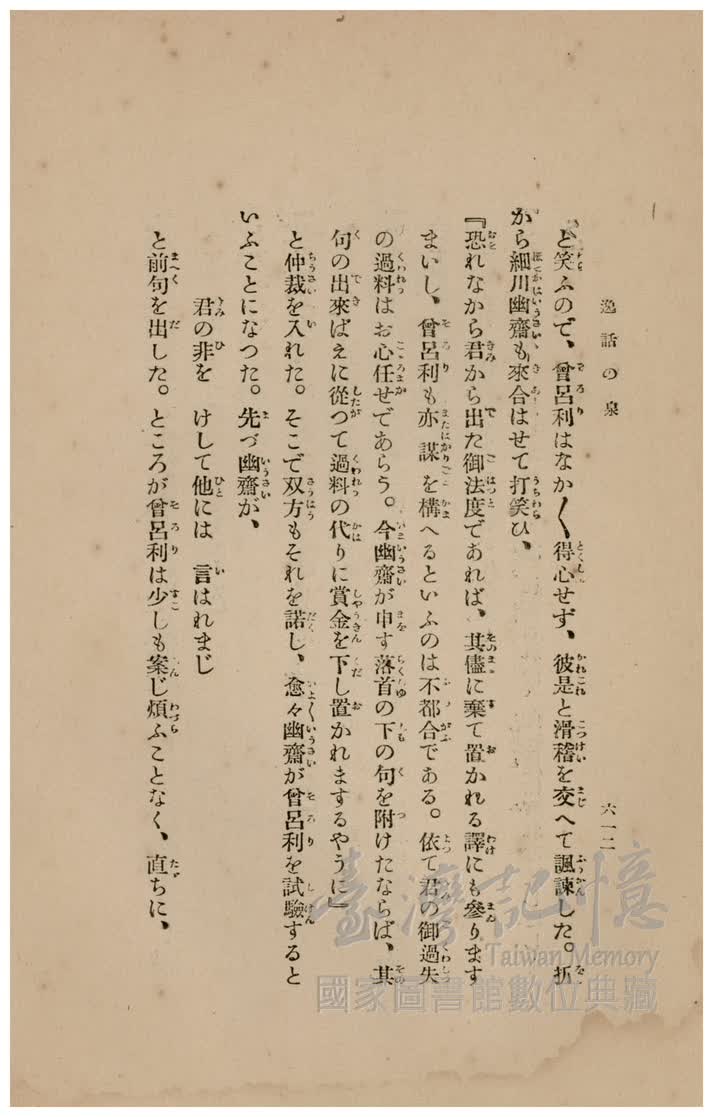 逸話の泉
六一二
と笑ふので、曾呂利はなか〱得心せず、彼是と滑稽を交へて諷諫した。折
から細川幽齋も來合はせて打笑ひ、
『恐れながら君から出た御法度であれば、其儘に棄て置かれる譯にも參ります
まいし、曾呂利も亦謀を構へるといふのは不都合である。依て君の御過失
の過料はお心任せであらう。今幽齋が申す落首の下の句を附けたならば、其
句の出來ばえに從つて過料の代りに賞金を下し置かれまするやうに』
と仲裁を入れた。そこで双方もそれを諾し、愈々幽齋が曾呂利を試驗すると
いふことになつた。先づ幽齋が、
君の非を けして他には 言はれまじ
と前句を出した。ところが曾呂利は少しも案じ煩ふことなく、直ちに、
臺灣記憶
Taiwan Memory
國家圖書館數位典藏